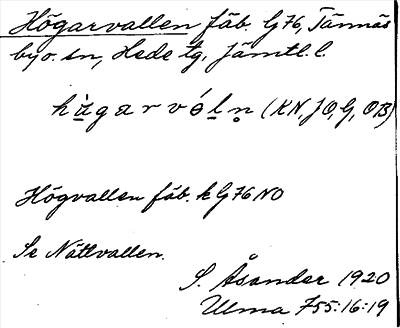 Högarvallen fäb. G76, Tännäs
byo. sn, Hede tg, Jämtl. l.
hu̇garvóln̥ (KN, JO, G, OB)
Högvallen fäb. k G76 NO
Se Nätlvallen.
S. Åsander 1920
Ulma 755:16:19